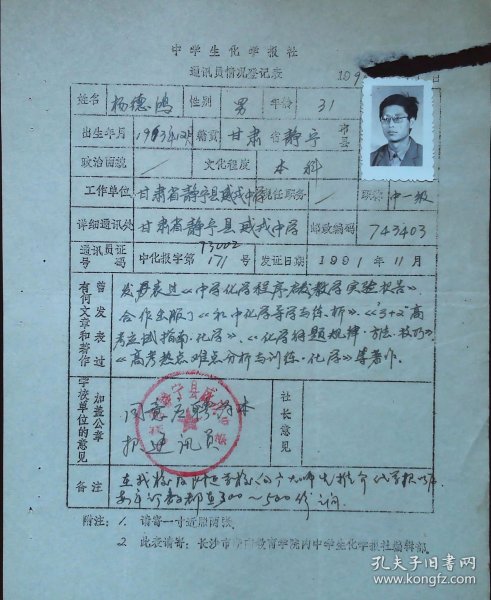 中学生化学报社
通讯员情况登记表
姓名 杨德鸿 性别 男 年龄 31
出生年月 1963年12月 籍贯 甘肃省静宁市县
政治面貌 / 文化程度 本科
工作单位 甘肃省静宁县威戎中学 现任职务 / 职称 中一级
详细通讯处 甘肃省静宁县威戎中学 邮政编码 743403
通讯员证号码 中化报字第 73002 171 号 发证日期 1991年11月
曾发表过有何文章和著作
发表过《中学化学程序启发教学实验报告》
合作出版了《初中化学导学与练·析》《"3+2"高
考应试指南·化学》、《化学解题规律·方法·技巧》
《高考热点难点分析与训练·化学》等著作.
加盖公章学校单位的意见
同意应聘为本
报通讯员
社长意见
备注
每年订数都在300～500份之间.
附注：1. 请寄一寸近照两张.
2 此表请寄：长沙市 教育学院内中学生化学报社编辑部
孔夫子旧书网
www.kongfz.com